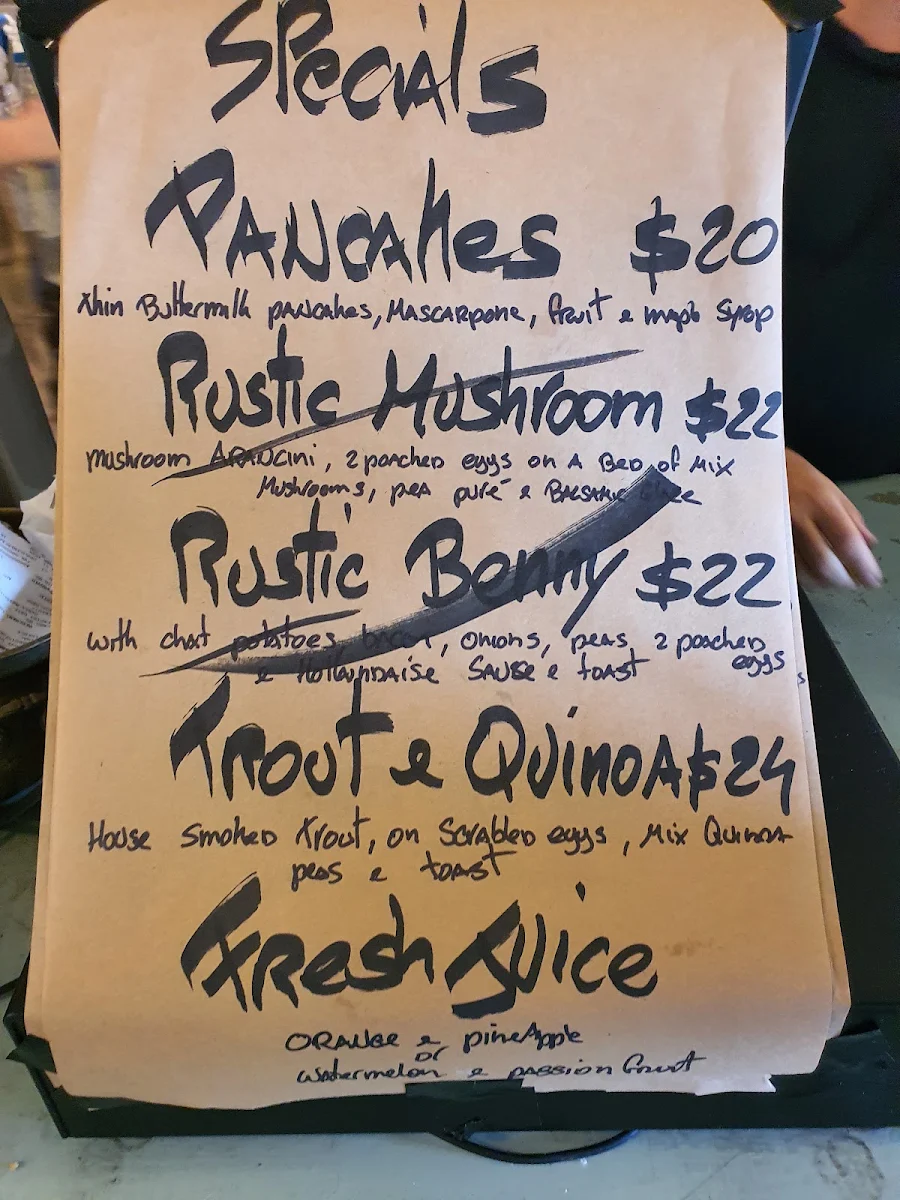 Specials
Pancakes $20
thin Buttermilk pancakes, Mascarpone, fruit e maple Syrop
Rustic Mushroom $22
mushroom Arancini, 2 poached eggs on a Bed of Mix
Mushrooms, pea puré e Balsamic Glaze
Rustic Benny $22
with chat potatoes, bacon, onions, peas, 2 poached
eggs
e Hollandaise Sause e toast
Trout e Quinoa $24
House Smoked trout, on Scrabled eggs, Mix Quinoa
peas e toast
Fresh Juice
Orange e pineApple
or
Watermelon e passion fruit